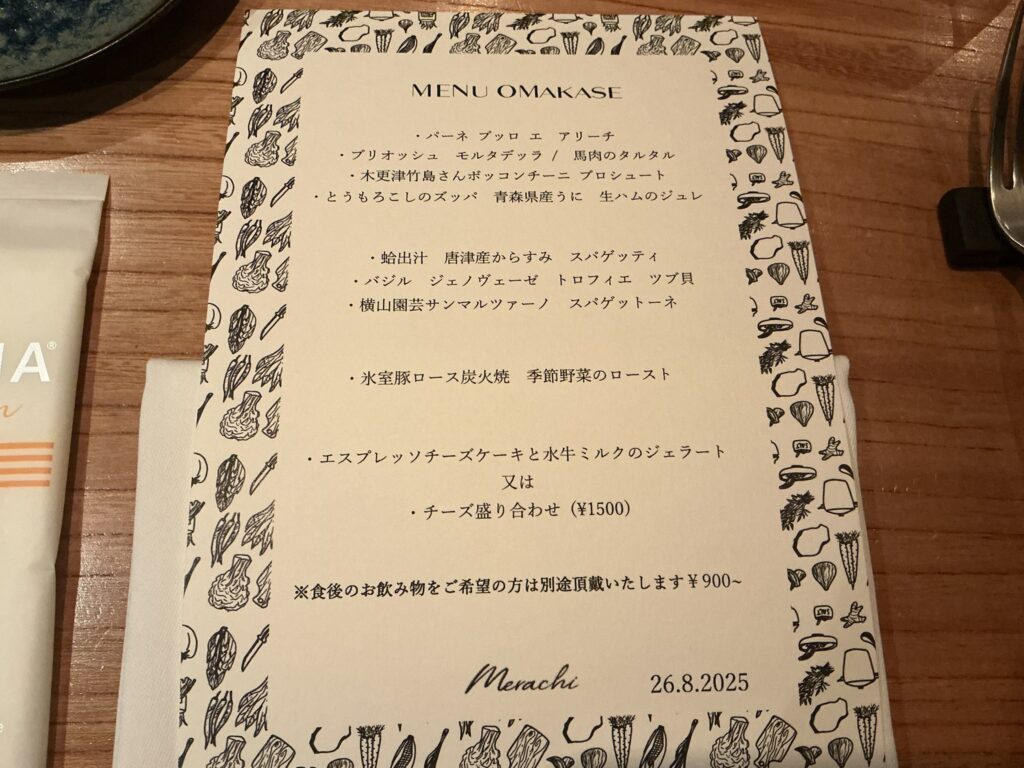 MENU OMAKASE
・パーネ ブッロ エ アリーチ
・ブリオッシュ モルタデッラ / 馬肉のタルタル
・木更津竹島さんボッコンチーニ プロシュート
・とうもろこしのズッパ 青森県産うに 生ハムのジュレ
・蛤出汁 唐津産からすみ スパゲッティ
・バジル ジェノヴェーゼ トロフィエ ツブ貝
・横山園芸サンマルツァーノ スパゲットーネ
・氷室豚ロース炭火焼 季節野菜のロースト
・エスプレッソチーズケーキと水牛ミルクのジェラート
又は
・チーズ盛り合わせ (¥1500)
※食後のお飲み物をご希望の方は別途頂戴いたします¥900~
Merachi
26.8.2025